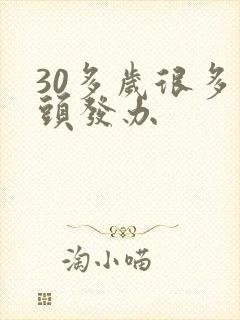 30多歲很多
頭發办
淘小喵